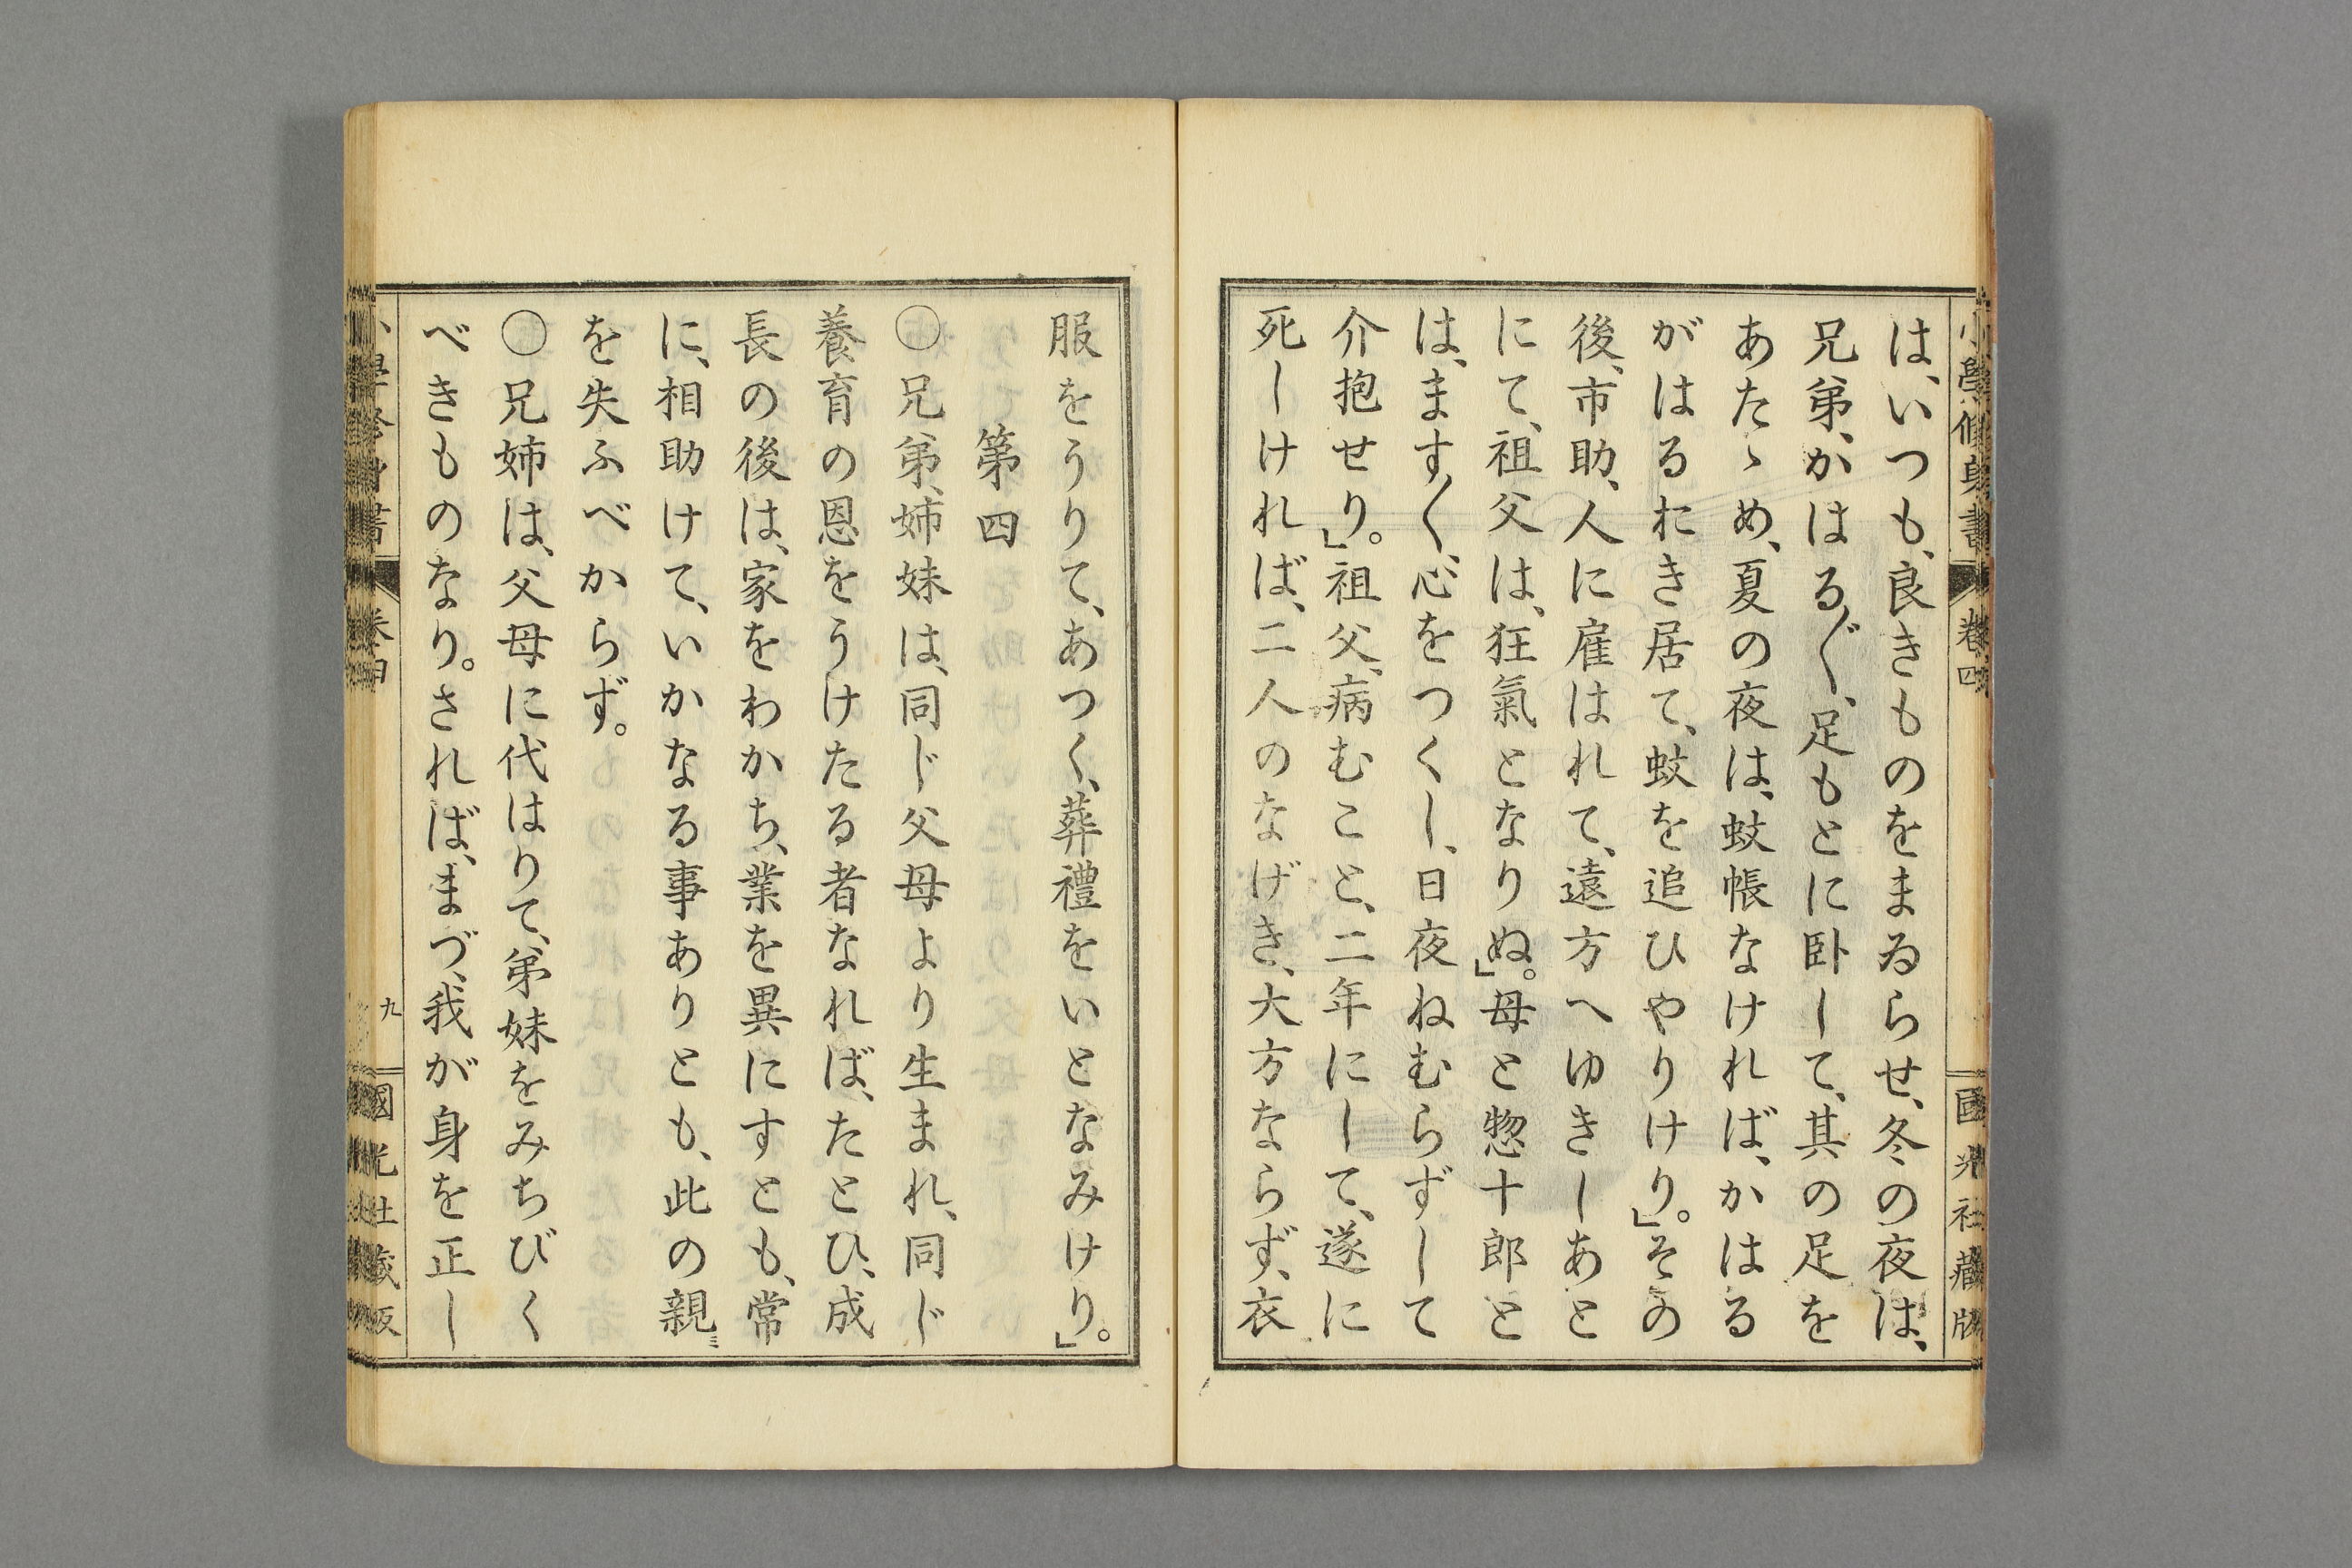 小學修身書 卷四 國光社藏版
は、いつも、良きものをまゐらせ、冬の夜は、
兄弟、かはる〲、足もとに臥して、其の足を
あたゝめ、夏の夜は、蚊帳なければ、かはる
がはるおき居て、蚊を追ひやりけり。」その
後、市助、人に雇はれて、遠方へゆきしあと
にて、祖父は、狂氣となりぬ。」母と惣十郎と
は、ます〱、心をつくし、日夜ねむらずして
介抱せり。」祖父、病むこと、二年にして、遂に
死しければ、二人のなげき、大方ならず、衣
服をうりて、あつく、葬禮をいとなみけり。」
第四
〇兄弟、姉妹は、同じ父母より生まれ、同じ
養育の恩をうけたる者なれば、たとひ、成
長の後は、家をわかち、業を異にすとも、常
に、相助けて、いかなる事ありとも、此の親
を失ふべからず。
〇兄姉は、父母に代はりて、弟妹をみちびく
べきものなり。されば、まづ、我が身を正し
小學修身書 卷四 九 國光社藏版